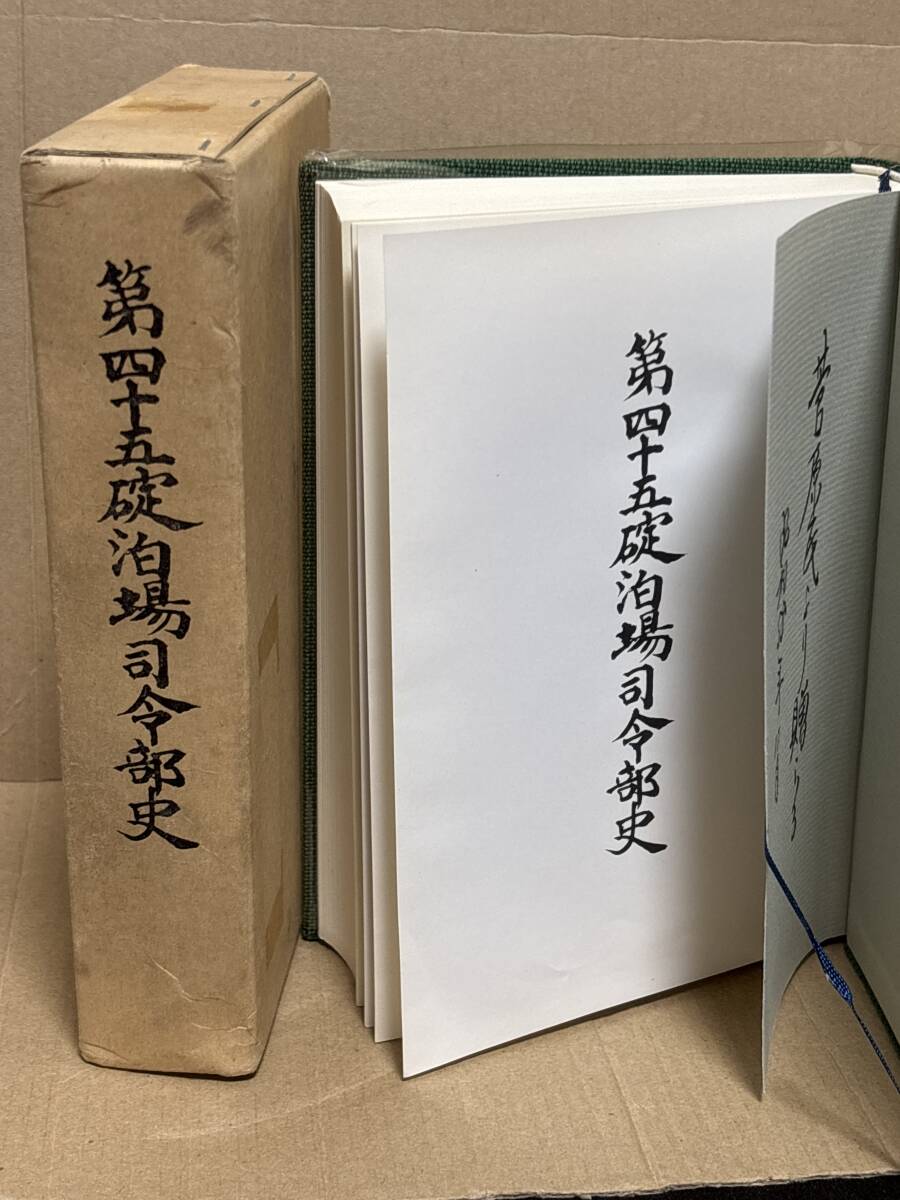 第四十五碇泊場司令部史
第四十五碇泊場司令部史
菅原氏より贈らる